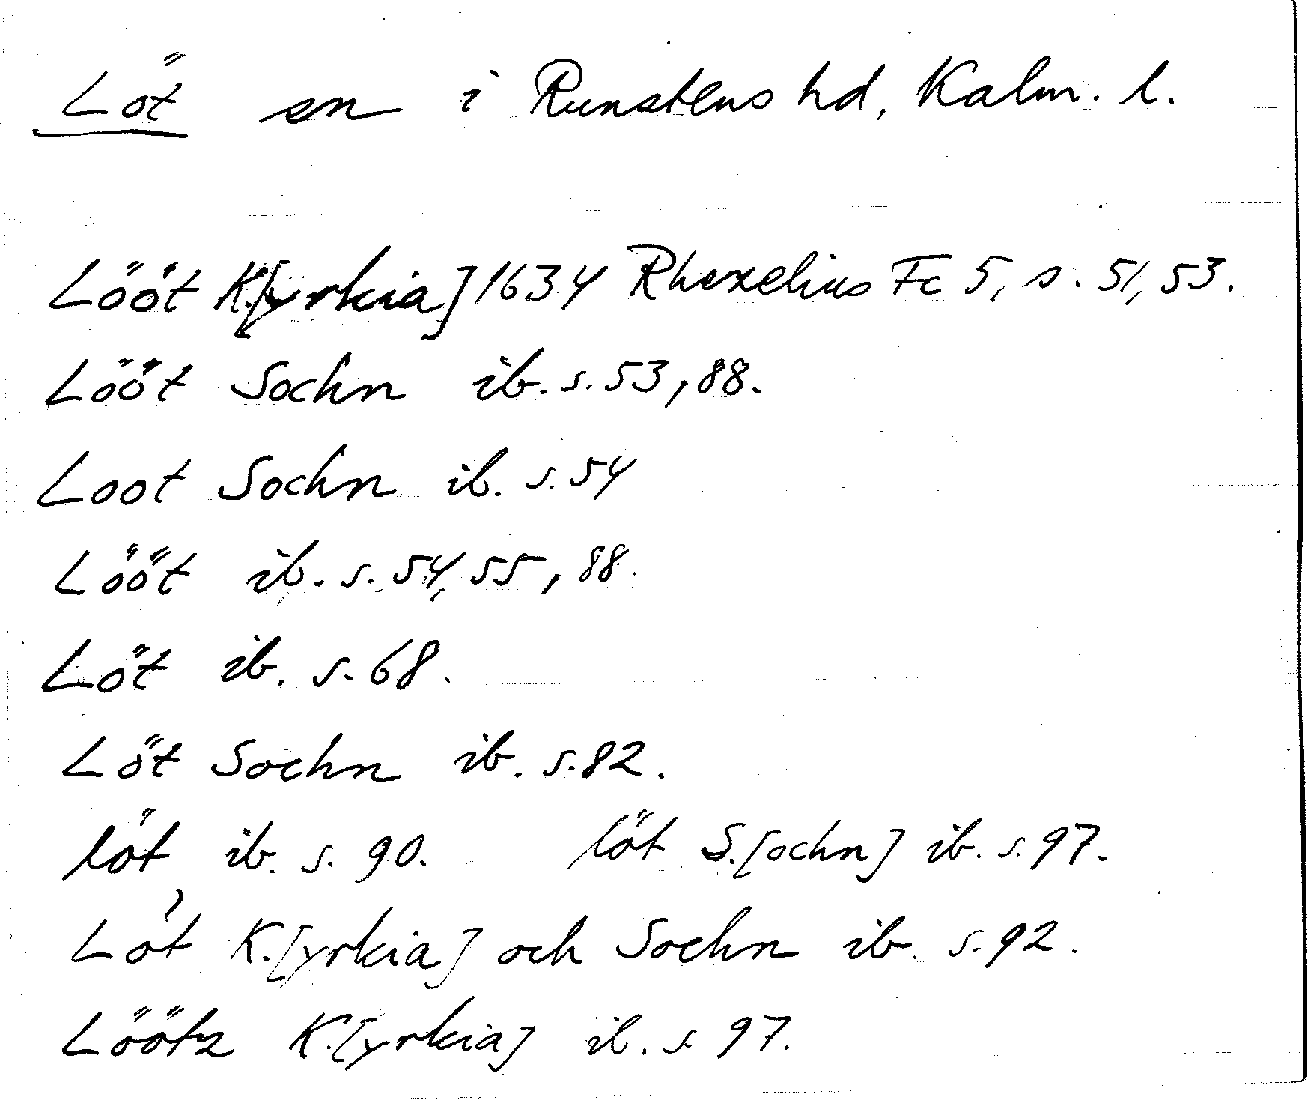 Löt sn i Runstens hd, Kalm. l.
Lööt K.[yrkia] 1634 Rhezelius Fc 5, s. 51, 53.
Lööt Sochn ib. s. 53, 88.
Loot Sochn ib. s. 54
Lööt ib. s. 54, 55, 88.
Löt ib. s. 68.
Löt Sochn ib. s. 82.
löt ib. s. 90. löt S.[ochn] ib. s. 97.
Lot K.[yrkia] och Sochn ib. s. 92.
Löötz K.[yrkia] ib. s. 97.